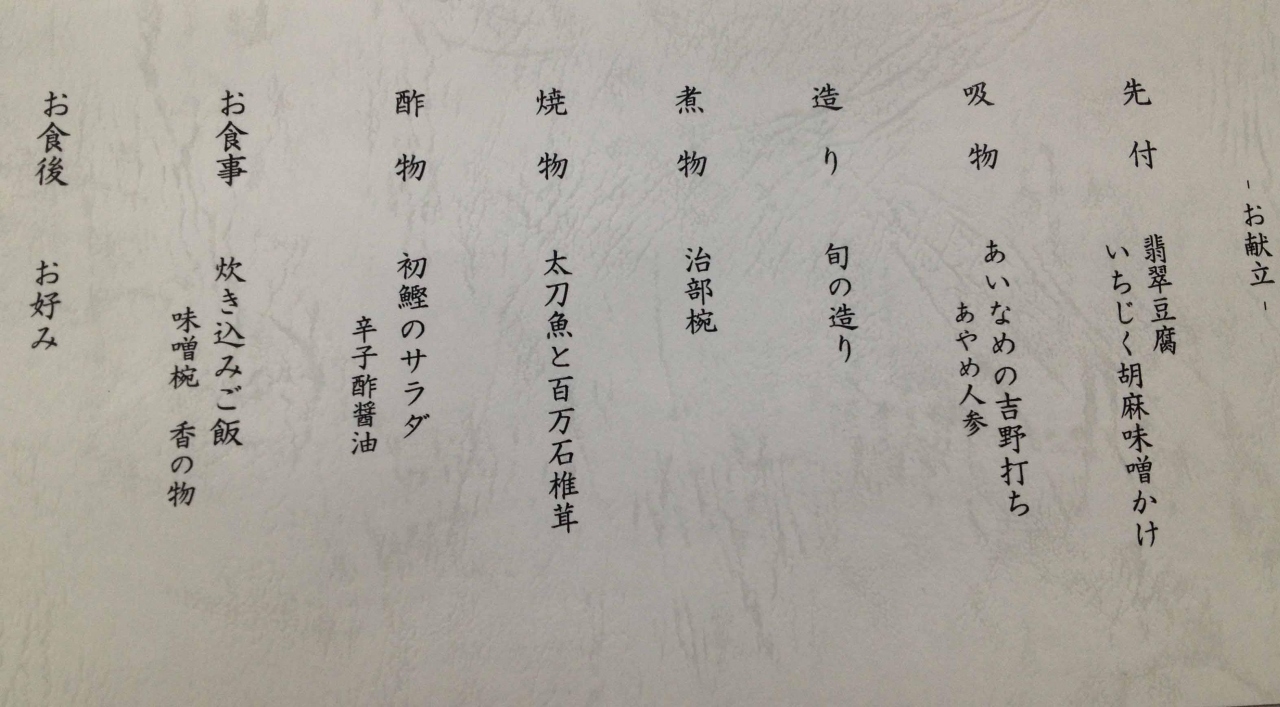 -お献立-
先付 翡翠豆腐
いちじく胡麻味噌かけ
吸物 あいなめの吉野打ち
あやめ人参
造り 旬の造り
煮物 治部椀
焼物 太刀魚と百万石椎茸
酢物 初鰹のサラダ
辛子酢醤油
お食事 炊き込みご飯
味噌椀 香の物
お食後 お好み